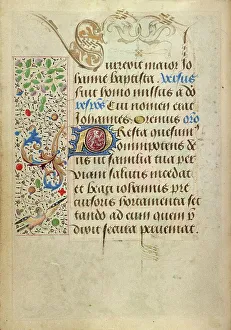 Surrexit maior Jo
hanne baptista Versus
fuit homo missus a do
respons Cui nomen erat
Johannes Oremus oro
Presta quesum
omnipotens deus
ut familia tua per
viam salutis incedat
et beati iohannis pre
cursoris hortamenta sec
tando ad eum quem p
dixit secura perveniat.